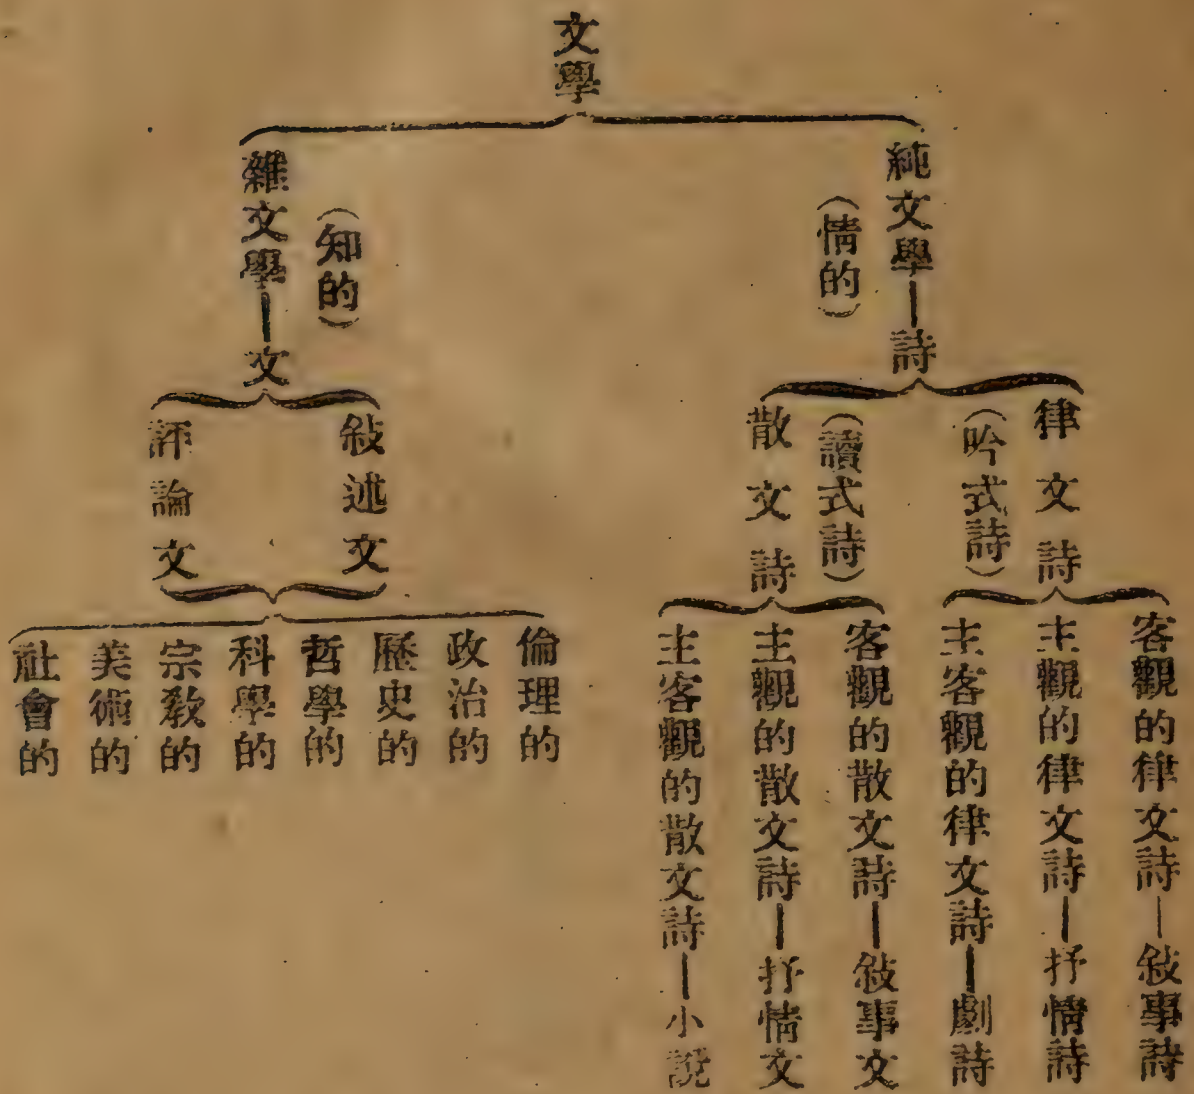 文學
純文學—詩
(情的)
律文詩
(吟式詩)
客觀的律文詩—敍事詩
主觀的律文詩—抒情詩
主客觀的律文詩—劇詩
(讀式詩)
散文詩
客觀的散文詩—敍事文
主觀的散文詩—抒情文
主客觀的散文詩—小說
(知的)
雜文學—文
敍述文
評論文
倫理的
政治的
歷史的
哲學的
科學的
宗教的
美術的
社會的